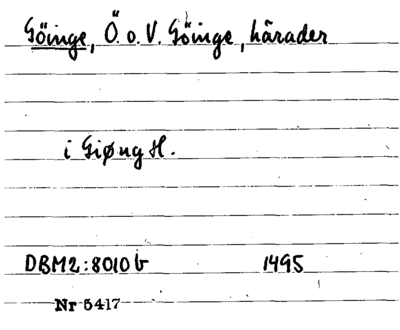 Göinge, Ö. o. V. Göinge, härader
i Giøng H.
DBM2:8010 b 1495
Nr 5417